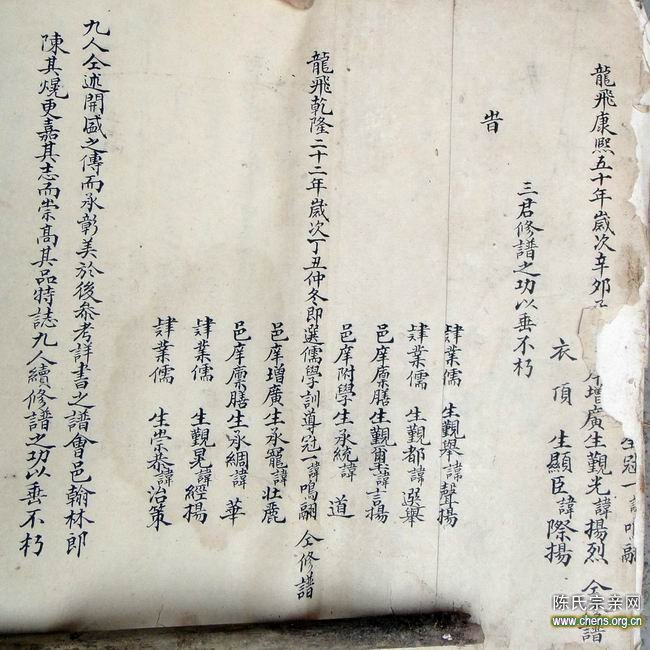 龍飛康熙五十年歲次辛卯
生冠一諱鳴翮
庠增廣生觀光諱揚烈 仝修譜
衣頂生顯臣諱際揚
三君修譜之功以垂不朽
旹
肄業儒 生觀舉諱聲揚
肄業儒 生觀都諱選舉
邑庠廩膳生觀璽諱言揚
邑庠附學生承統諱 道
龍飛乾隆二十二年歲次丁丑仲冬即選儒學訓導冠一諱鳴翮 仝修譜
邑庠增廣生承寵諱壯麗
邑庠廩膳生承綢諱 華
肄業儒 生觀晃諱經揚
肄業儒 生崇恭諱治策
九人仝述開盛之傳而承彰美於後參考詳書之譜會邑翰林郎
陳其熀更嘉其志而崇高其品特誌九人續修譜之功以垂不朽
陈氏宗亲网
www.chens.org.cn